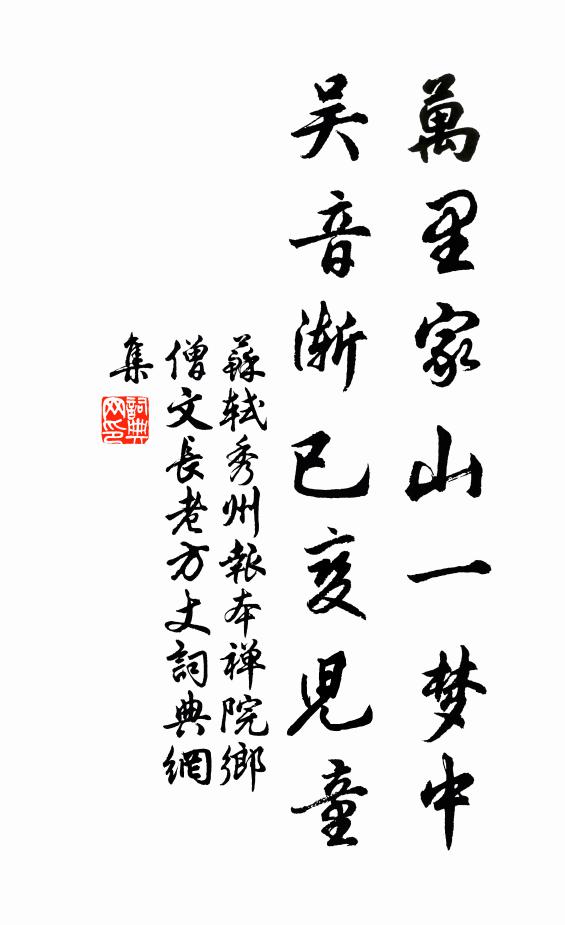 萬里家山一梦中
吳音漸已变児童
蘇軾秀州報本禅院鄉
僧文長老方丈詞典網
集
詞典
网印